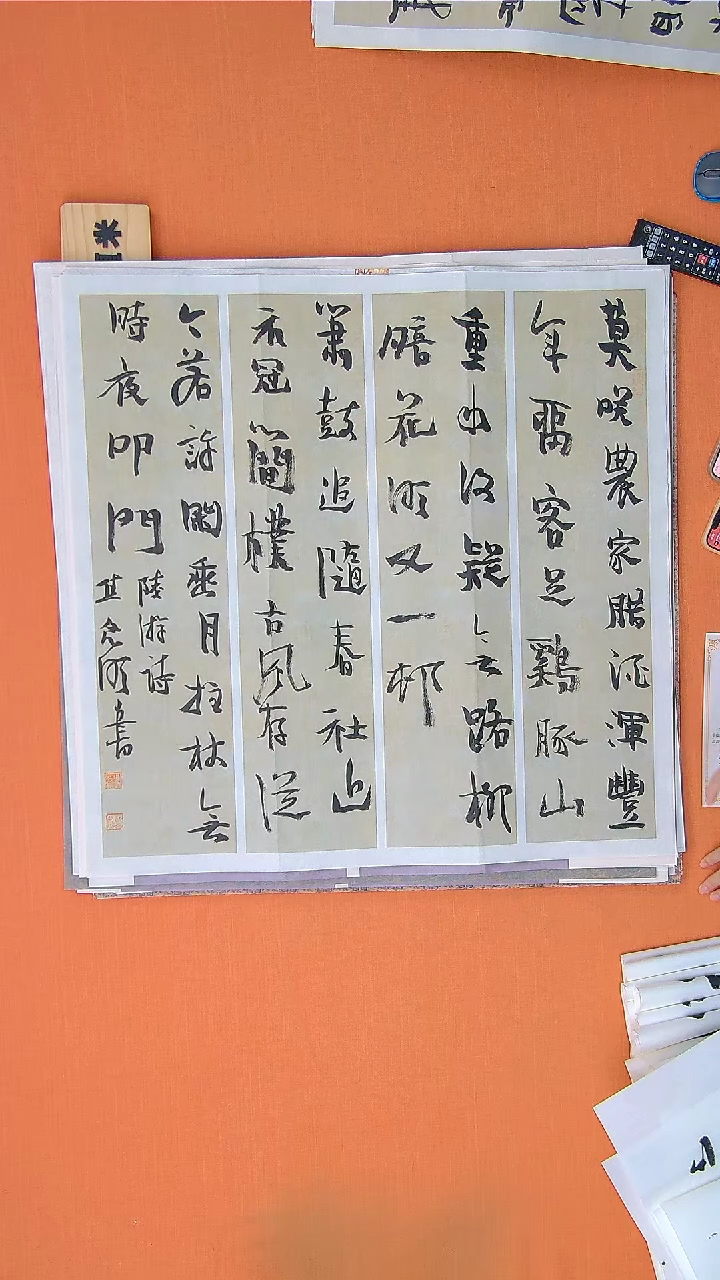 莫咲農家腊酒渾豐
年留客足鷄豚山
重水復疑無路柳
暗花明又一邨
簫鼓追隨春社近
衣冠簡樸古風存從
今若許閑乘月拄杖無
時夜叩門
陸游詩
書